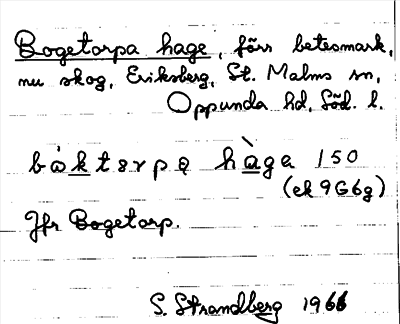 Bogetorpa hage, förr betesmark,
nu skog, Eriksberg, St. Malms sn,
Oppunda hd, Söd. l.
bȯktɘrpɘ hàga 150
(ek 9G6g)
Jfr Bogetorp.
S. Strandberg 1966